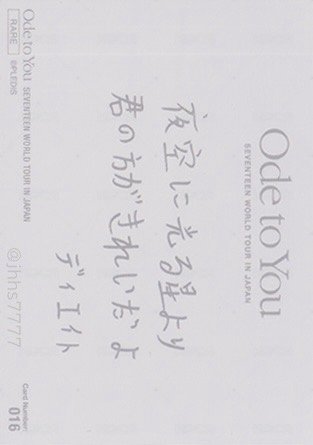 Ode to You
SEVENTEEN WORLD TOUR IN JAPAN
夜空に光る星より
君の方がきれいだよ
ディエイト
Ode to You SEVENTEEN WORLD TOUR IN JAPAN
RARE ©PLEDIS
Card Number:
016
@jhhs7777